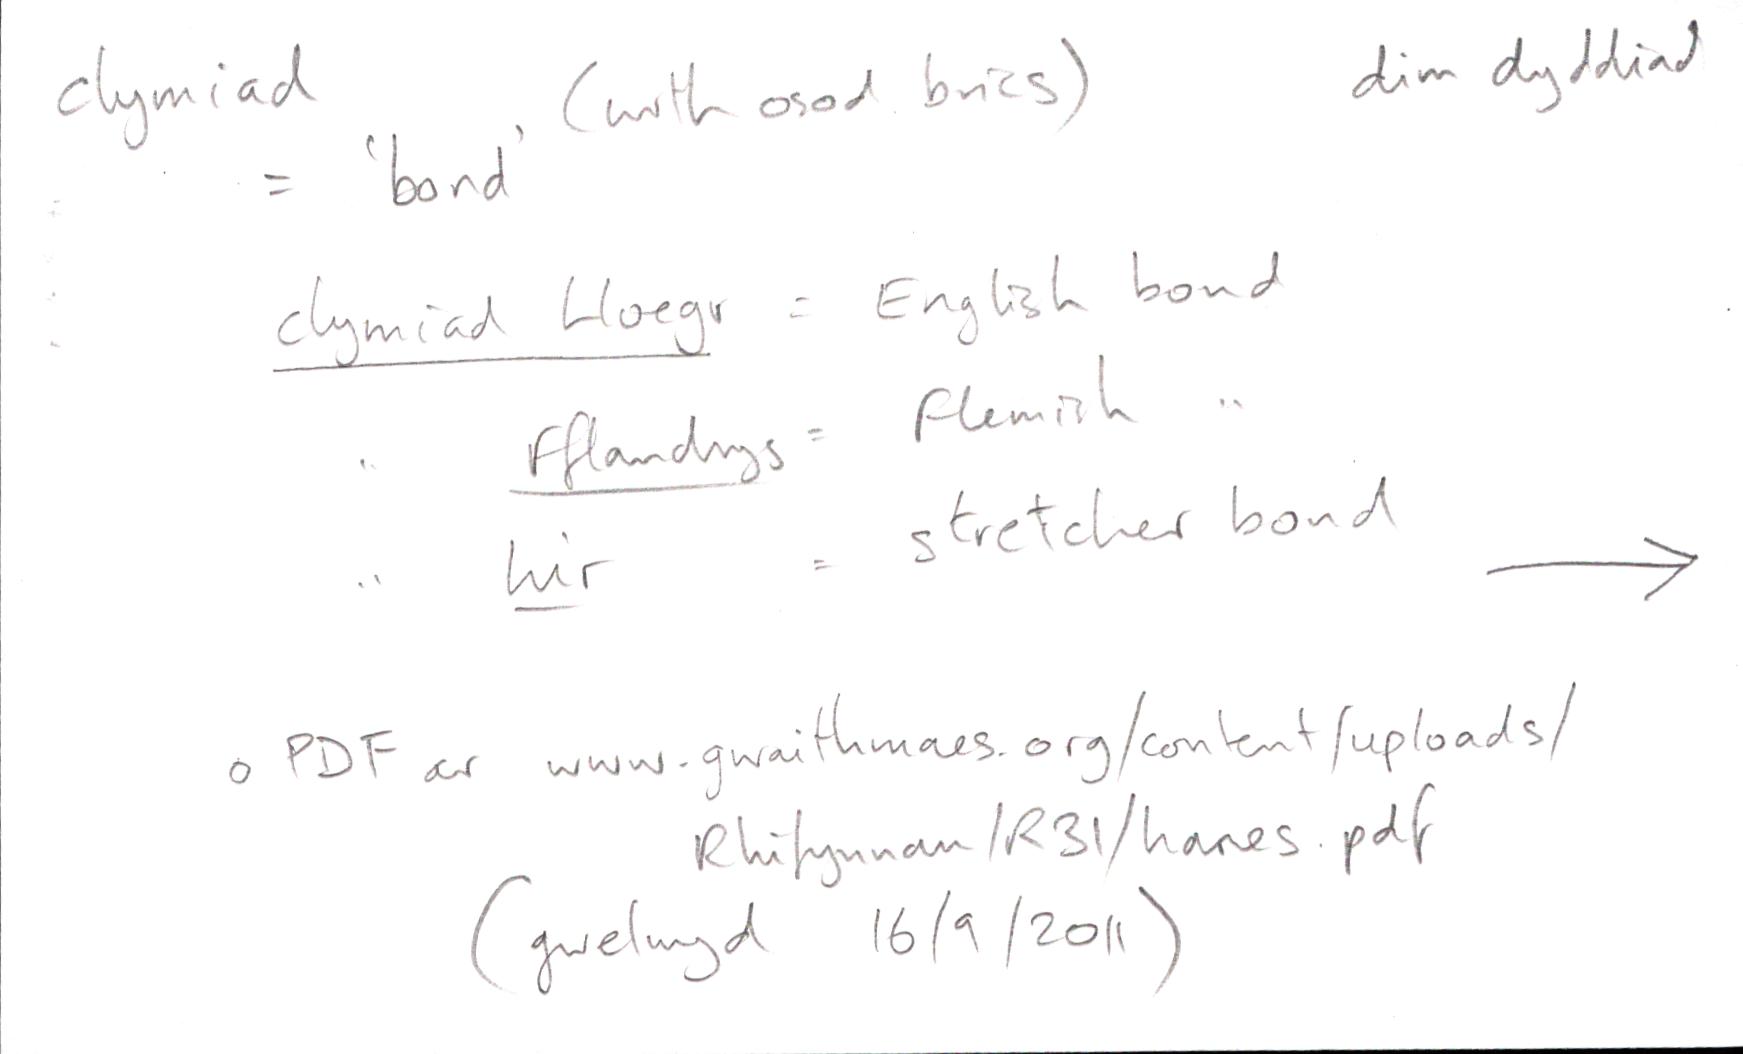 clymiad (wrth osod brics) dim dyddiad
= 'bond'
clymiad Lloegr = English bond
" Fflandrys = Flemish "
" hir = stretcher bond →
o PDF ar www.gwaithmaes.org/content/uploads/
Rhifynnau/R31/hanes.pdf
(gwelwyd 16/9/2011)